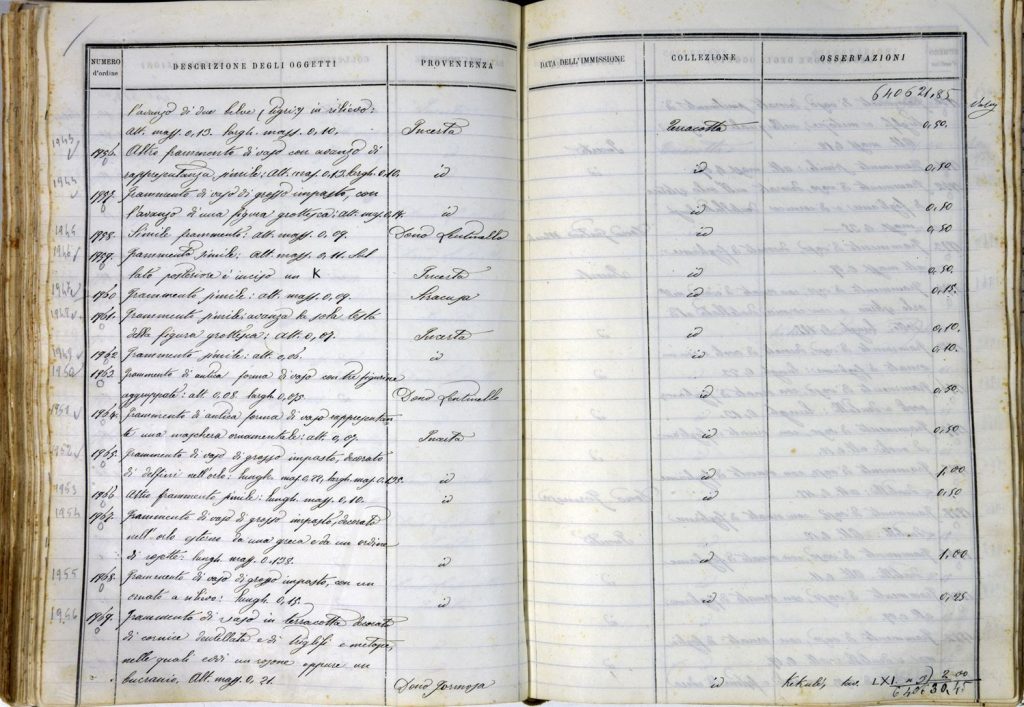 NUMERO d'ordine DESCRIZIONE DEGLI OGGETTI PROVENIENZA DATA DELL'IMMISSIONE COLLEZIONE OSSERVAZIONI
640621,85
l'avanzo di due belve (Tigri?) in rilievo:
alt. mass. 0,13. largh. mass. 0,10. Incerta Terracotta 0,50.
1943
1956. Altro frammento di vaso con avanzo di
rappresentanza simile: alt. mass. 0,12. largh. 0,10. id id 0,50
1944
1957. Frammento di vaso di grosso impasto, con
l'avanzo di una figura grottesca: alt. mass. 0,14. id id 0,50
1945
1958. Simile frammento: alt. mass. 0,09. Dono Lentinello id 0,50
1946
1959. Frammento simile: alt. mass. 0,11. sul
lato posteriore è inciso un K Incerta id 0,50.
1947
1960 Frammento simile: alt. mass. 0,09. Siracusa id 0,15.
1948
1961. Frammento simile; avanza la sola testa
della figura grottesca: alt. 0,07. Incerta id 0,10.
1949
1962 Frammento simile: alt. 0,06. id id 0,10.
1950
1963. Frammento di antica forma di vaso con tre figurine
aggruppate: alt. 0,08. largh. 0,075. Dono Lentinello id 0,50
1951
1964. Frammento di antica forma di vaso rappresentan-
te una maschera ornamentale: alt. 0,07. Incerta id 0,50
1952
1965. Frammento di vaso di grosso impasto, decorato
di delfini nell'orlo: lungh. mass. 0,22, largh. mass. 0,135. id id 1,00
1953
1966 Altro frammento simile: lungh. mass. 0,10. id id 0,50
1954
1967. Frammento di vaso di grosso impasto, decorato
nell'orlo esterno da una greca e da un ordine
di rosette: lungh. mass. 0,138. id id 1,00
1955
1968. Frammento di vaso di grosso impasto, con un
ornato a rilievo: lungh. 0,15. id id 0,25
1956
1969. Frammento di vaso in terracotta decorato
di cornice dentellata e di triglifi e metope,
nelle quali evvi un rosone oppure un
bucranio. Alt. mass. 0,21. Dono Formosa id Kekulé, tav. LXI. 2,00
640630,45